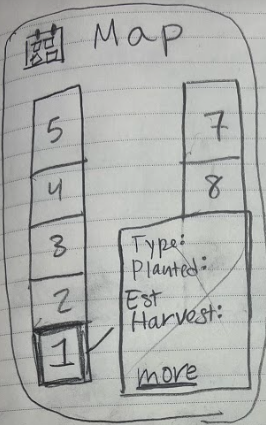 Map
5
4
3
2
1
7
8
Type:
Planted:
Est
Harvest:
more